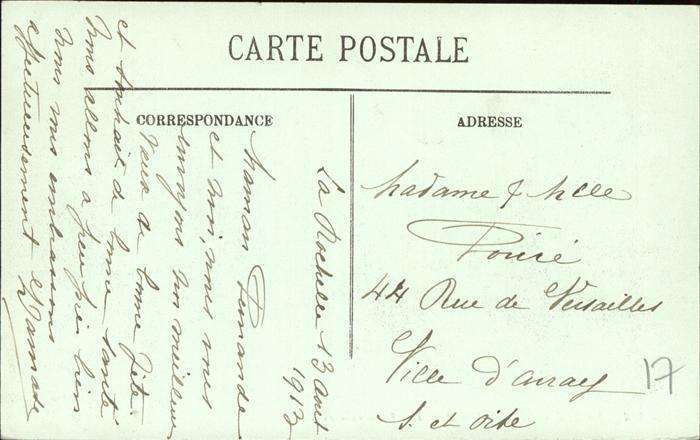 CARTE POSTALE
CORRESPONDANCE
ADRESSE
La Rochelle 13 Aout
1913
Maman Fernande
et moi, nous vous
envoyons nos meilleur
vœux de bonne fête
et souhait de bonne santé
Nous allons a peu près bien
Nous vous embrassons
affectueusement
Madame & Mlle
44 Rue de Versailles
Ville d'avray
S. et oise
17